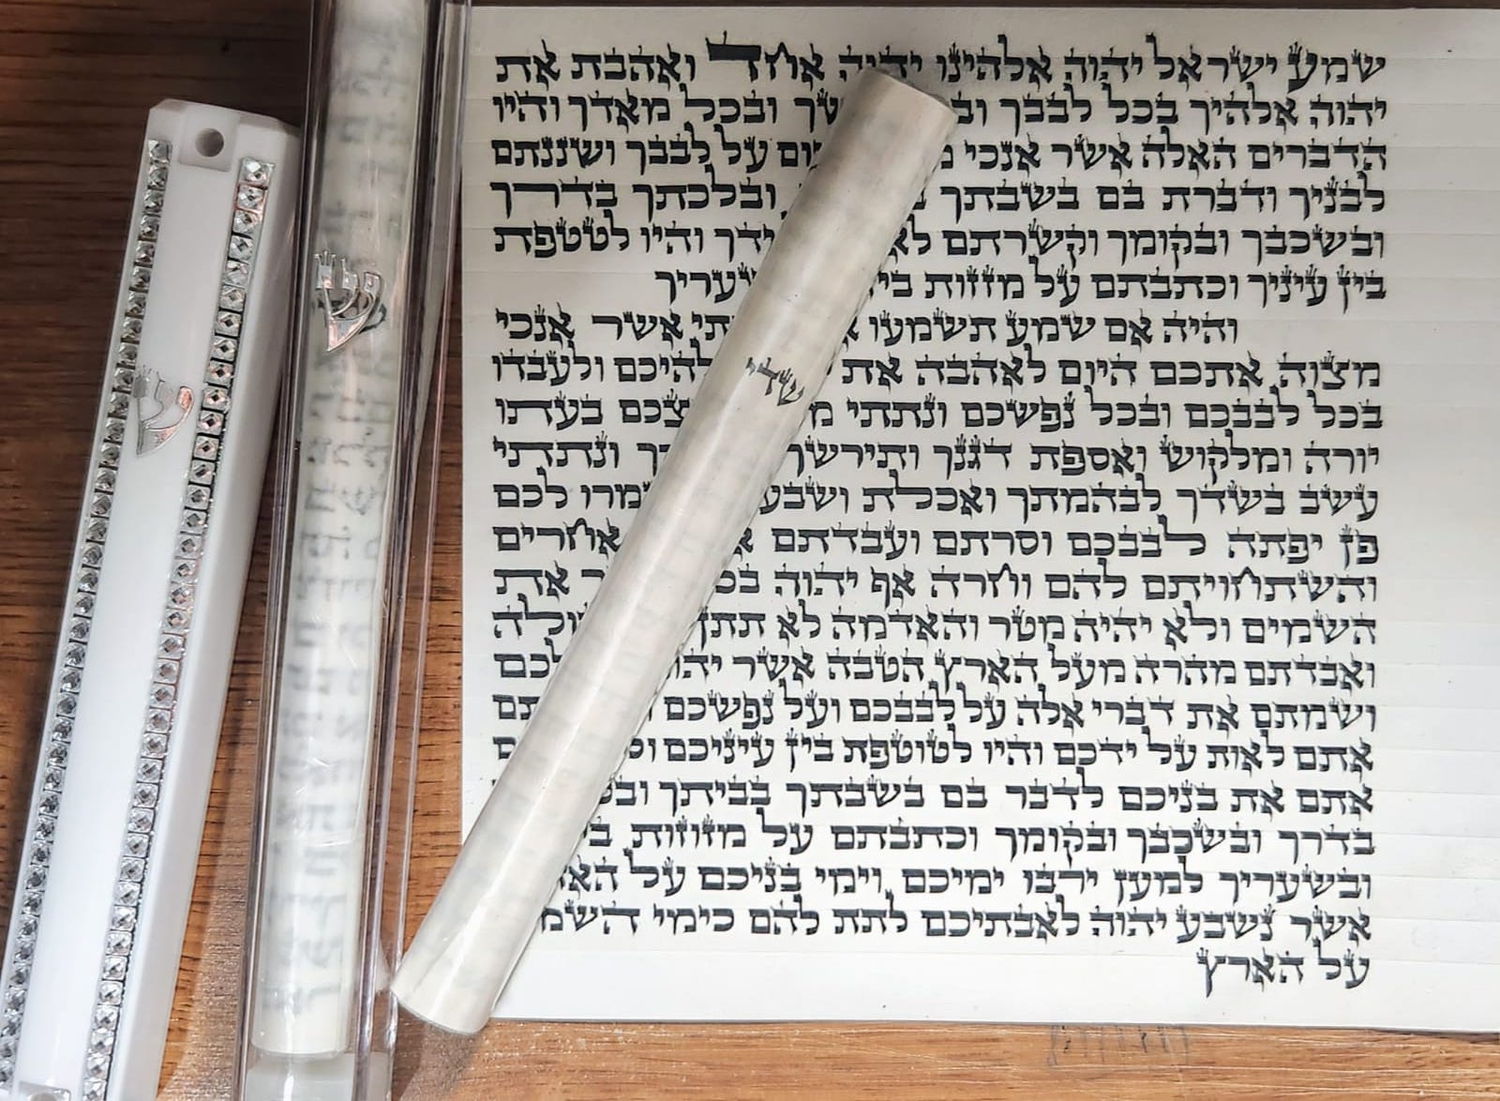 שמע ישראל יהוה אלהינו יהוה אחד ואהבת את
יהוה אלהיך בכל לבבך ובכל מאדך והיו
הדברים האלה אשר אנכי על לבבך ושננתם
לבניך ודברת בם בשבתך ובלכתך בדרך
ובשכבך ובקומך וקשרתם ידך והיו לטטפת
בין עיניך וכתבתם על מזזות
והיה אם שמע תשמעו אשר אנכי
מצוה אתכם היום לאהבה את ולעבדו
בכל לבבכם ובכל נפשכם ונתתי בעתו
יורה ומלקוש ואספת דגנך ותירשך ונתתי
עשב בשדך לבהמתך ואכלת לכם
פן יפתה לבבכם וסרתם ועבדתם
והשתחויתם להם וחרה אף יהוה את
השמים ולא יהיה מטר והאדמה לא תתן
ואבדתם מהרה מעל הארץ הטבה אשר
ושמתם את דברי אלה על לבבכם ועל נפשכם
אתם לאות על ידכם והיו לטוטפת בין עיניכם
אתם את בניכם לדבר בם בשבתך בביתך
בדרך ובשכבך ובקומך וכתבתם על מזוזות
ובשעריך למען ירבו ימיכם וימי בניכם על
אשר נשבע יהוה לאבתיכם לתת להם כימי
על הארץ
ש
שדי
שדי